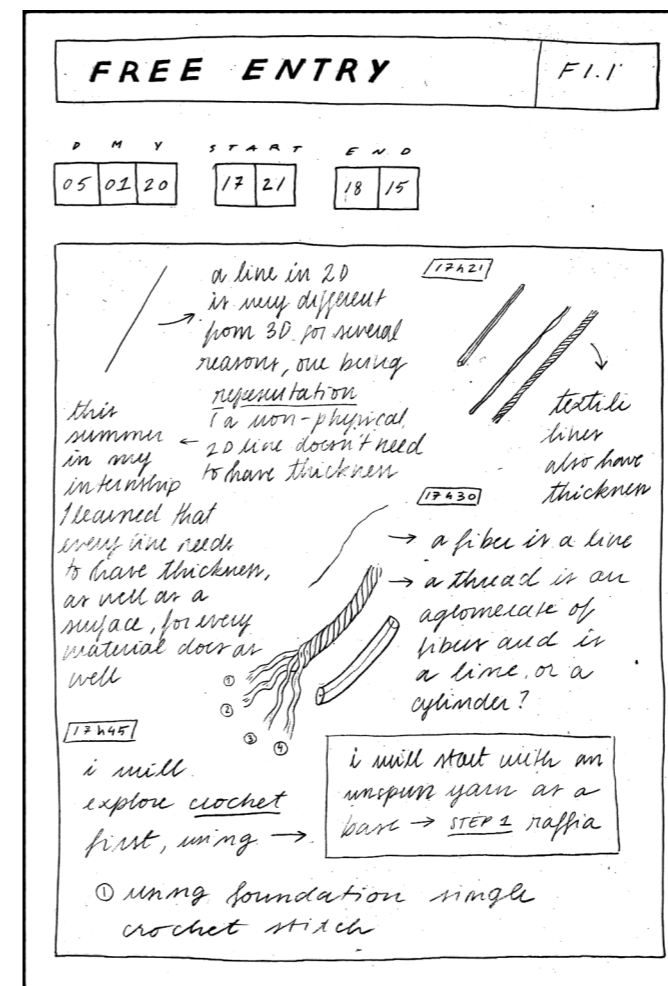 FREE ENTRY
F1.1
D M Y
START
END
05 01 20
17 21
18 15
17h21
a line in 2D
is very different
from 3D for several
reasons, one being
representation
a non-physical
2D line doesn't need
to have thickness
this
summer
in my
internship
I learned that
every line needs
to have thickness,
as well as a
surface, for every
material does as
well
textile
lines
also have
thickness
17h30
→ a fiber is a line
→ a thread is an
aglomerate of
fibers and is
a line, or a
cylinder?
①
②
③
④
17h45
i will
explore crochet
first, using →
i will start with an
unspun yarn as a
base → STEP 1 raffia
① using foundation single
crochet stitch